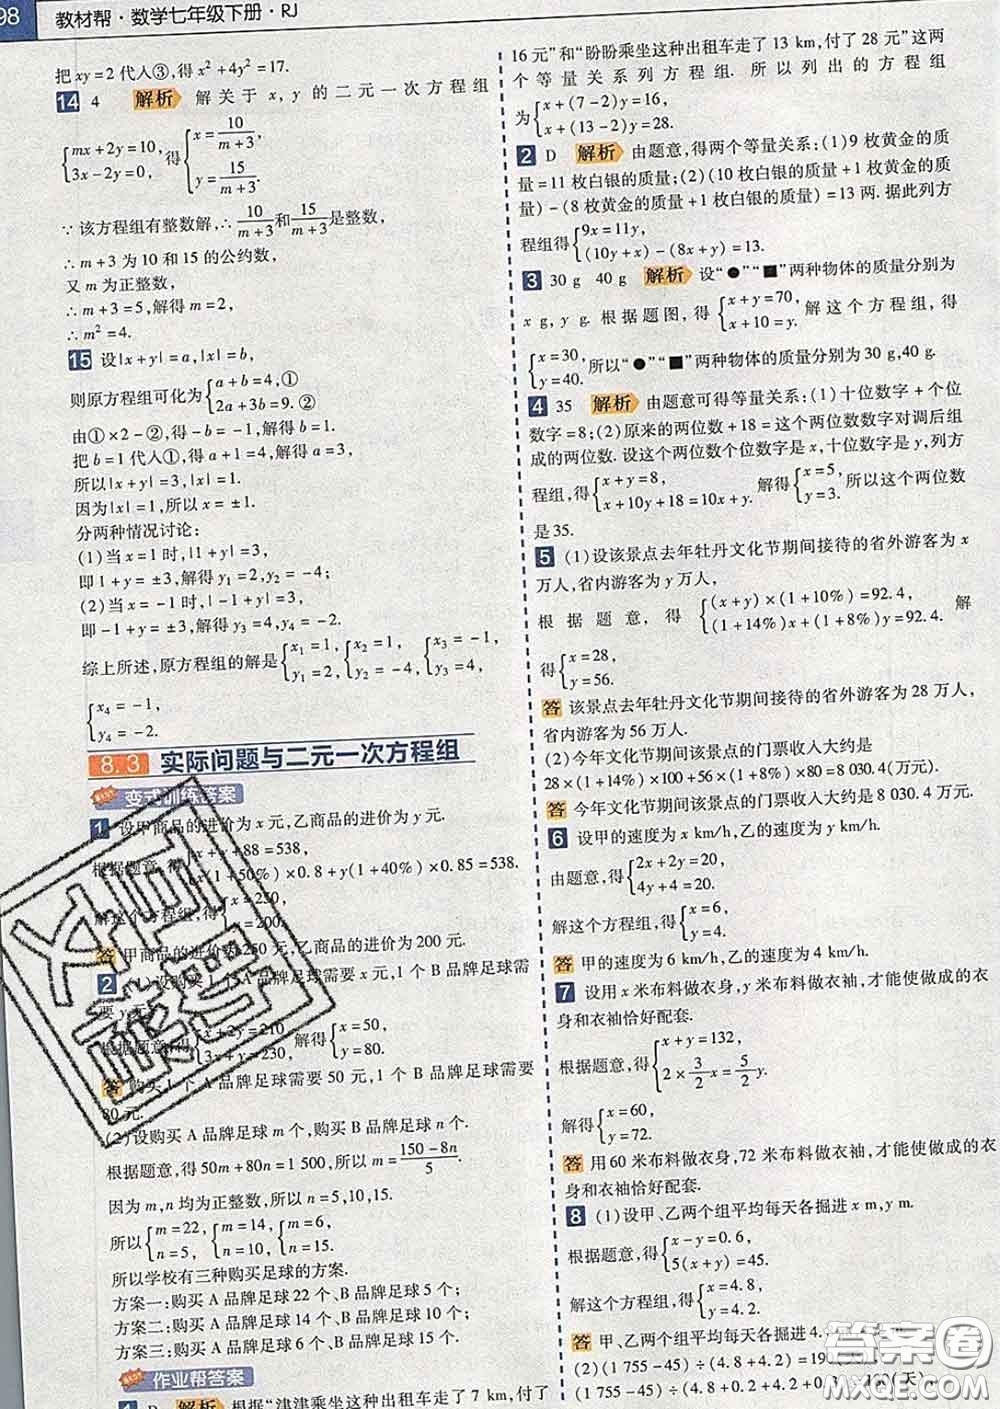 98
教材帮·数学七年级下册·RJ
把 xy=2 代入③,得 x²+4y²=17.
14 4 解析 解关于 x, y 的二元一次方程组
{mx+2y=10, 3x-2y=0, 得{x=10/(m+3), y=15/(m+3).
∵该方程组有整数解,∴10/(m+3)和15/(m+3)是整数,
∴m+3 为 10 和 15 的公约数,
又 m 为正整数,
∴m+3=5,解得 m=2,
∴m²=4.
15 设|x+y|=a,|x|=b,
则原方程组可化为{a+b=4,① 2a+3b=9.②
由①×2-②,得-b=-1,解得 b=1.
把 b=1 代入①,得 a+1=4,解得 a=3,
所以|x+y|=3,|x|=1.
因为|x|=1,所以 x=±1.
分两种情况讨论:
(1)当 x=1 时,|1+y|=3,
即 1+y=±3,解得 y₁=2,y₂=-4;
(2)当 x=-1 时,|-1+y|=3,
即-1+y=±3,解得 y₃=4,y₄=-2.
综上所述,原方程组的解是{x₁=1, y₁=2, {x₂=1, y₂=-4, {x₃=-1, y₃=4,
{x₄=-1, y₄=-2.
8.3 实际问题与二元一次方程组
变式训练答案
1 设甲商品的进价为 x 元,乙商品的进价为 y 元.
根据题意,得{x+y+88=538, x(1+50%)×0.8+y(1+40%)×0.85=538.
解这个方程组,得{x=250, y=200.
答 甲商品的进价为 250 元,乙商品的进价为 200 元.
2 (1)设购买 1 个 A 品牌足球需要 x 元,1 个 B 品牌足球需
要 y 元.
根据题意,得{x+2y=210, 3x+y=230, 解得{x=50, y=80.
答 购买 1 个 A 品牌足球需要 50 元,1 个 B 品牌足球需要
80 元.
(2)设购买 A 品牌足球 m 个,购买 B 品牌足球 n 个.
根据题意,得 50m+80n=1 500,所以 m=(150-8n)/5.
因为 m,n 均为正整数,所以 n=5,10,15.
所以{m=22, n=5, {m=14, n=10, {m=6, n=15.
所以学校有三种购买足球的方案.
方案一:购买 A 品牌足球 22 个、B 品牌足球 5 个;
方案二:购买 A 品牌足球 14 个、B 品牌足球 10 个;
方案三:购买 A 品牌足球 6 个、B 品牌足球 15 个.
作业帮答案
1 D 解析 根据“津津乘坐这种出租车走了 7 km,付了
16 元”和“盼盼乘坐这种出租车走了 13 km,付了 28 元”这两
个等量关系列方程组. 所以列出的方程组
为{x+(7-2)y=16, x+(13-2)y=28.
2 D 解析 由题意,得两个等量关系:(1)9 枚黄金的质
量=11 枚白银的质量;(2)(10 枚白银的质量+1 枚黄金的质
量)-(8 枚黄金的质量+1 枚白银的质量)=13 两. 据此列方
程组得{9x=11y, (10y+x)-(8x+y)=13.
3 30 g 40 g 解析 设“●”“■”两种物体的质量分别为
x g, y g. 根据题图,得{x+y=70, x+10=y. 解这个方程组,得
{x=30, y=40. 所以“●”“■”两种物体的质量分别为 30 g,40 g.
4 35 解析 由题意可得等量关系:(1)十位数字+个位
数字=8;(2)原来的两位数+18=这个两位数数字对调后组
成的两位数. 设这个两位数个位数字是 x,十位数字是 y,列方
程组,得{x+y=8, x+10y+18=10x+y. 解得{x=5, y=3. 所以这个两位数
是 35.
5 (1)设该景点去年牡丹文化节期间接待的省外游客为 x
万人,省内游客为 y 万人,
根据题意,得{(x+y)×(1+10%)=92.4, (1+14%)x+(1+8%)y=92.4. 解
得{x=28, y=56.
答 该景点去年牡丹文化节期间接待的省外游客为 28 万人,
省内游客为 56 万人.
(2)今年文化节期间该景点的门票收入大约是
28×(1+14%)×100+56×(1+8%)×80=8 030.4(万元).
答 今年文化节期间该景点的门票收入大约是 8 030.4 万元.
6 设甲的速度为 x km/h,乙的速度为 y km/h.
由题意,得{2x+2y=20, 4y+4=20.
解这个方程组,得{x=6, y=4.
答 甲的速度为 6 km/h,乙的速度为 4 km/h.
7 设用 x 米布料做衣身,y 米布料做衣袖,才能使做成的衣
身和衣袖恰好配套.
根据题意,得{x+y=132, 2×3/2x=5/2y.
解得{x=60, y=72.
答 用 60 米布料做衣身,72 米布料做衣袖,才能使做成的衣
身和衣袖恰好配套.
8 (1)设甲、乙两个组平均每天各掘进 x m,y m.
根据题意,得{x-y=0.6, 5(x+y)=45.
解这个方程组,得{x=4.8, y=4.2.
答 甲、乙两个组平均每天各掘进 4.
(2)(1 755-45)÷(4.8+4.2)=190
(1 755-45)÷(4.8+0.2+4.2+0.
答案圈
MXQE.COM